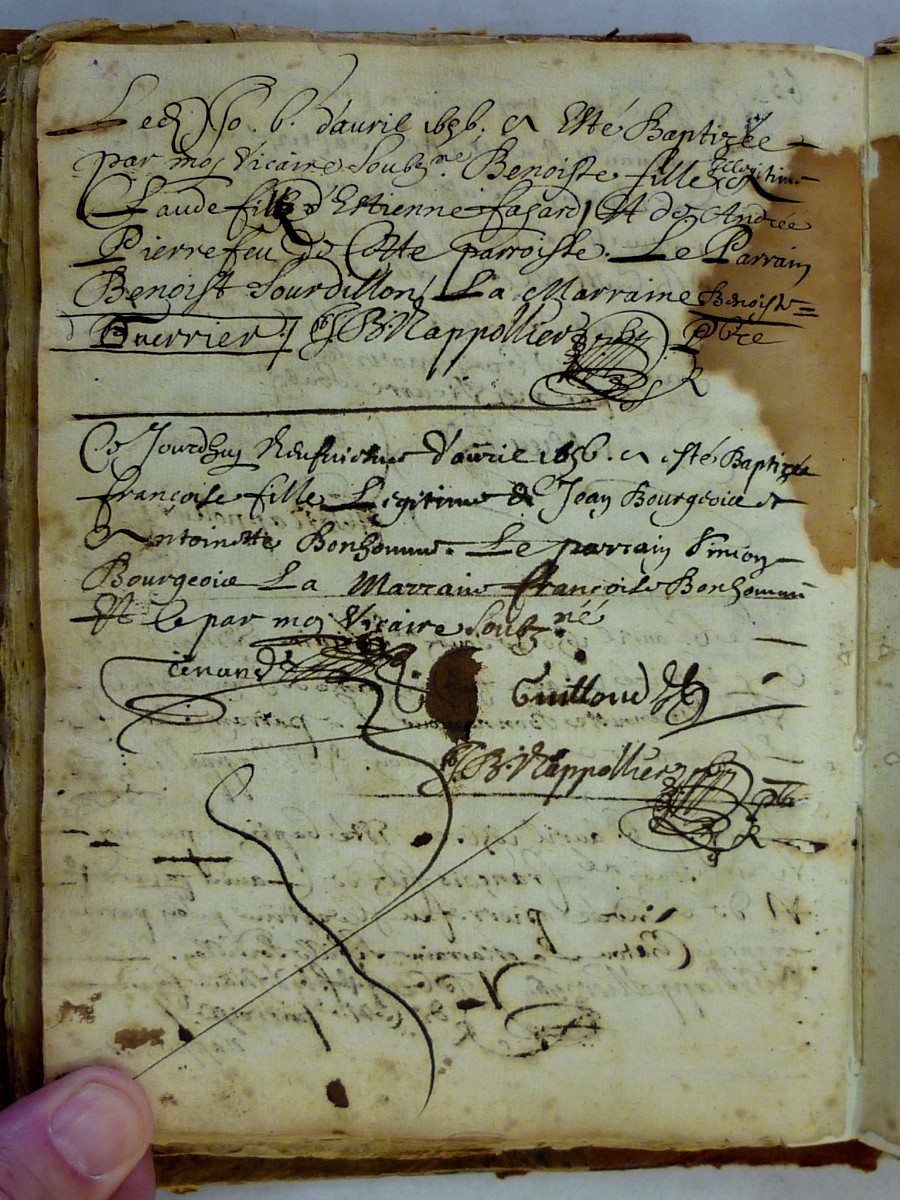 Led. Jo. 6. d'auril 1656. a Esté Baptizée
par moj Vicaire Soubz.né Benoiste fille Illegitime
Claude fille d'Estienne fasard Et de Andrée
Pierrefeu de Cette parroisse. Le Parrain
Benoist Sourdillon, La Marraine Benoiste
Guerrier J B. Nappollier pbre
Ce Jourdhuj Neufuiesme d'auril 1656. a esté Baptizée
françoise fille Legitime de Jean Bourgeoice et
Antoinette Bonhomme. Le parrain Simon
Bourgeoice La Marraine françoise Bonhomme
Et le par moj Vicaire Soubz.né
Guilloud
J B. Nappollier pbr